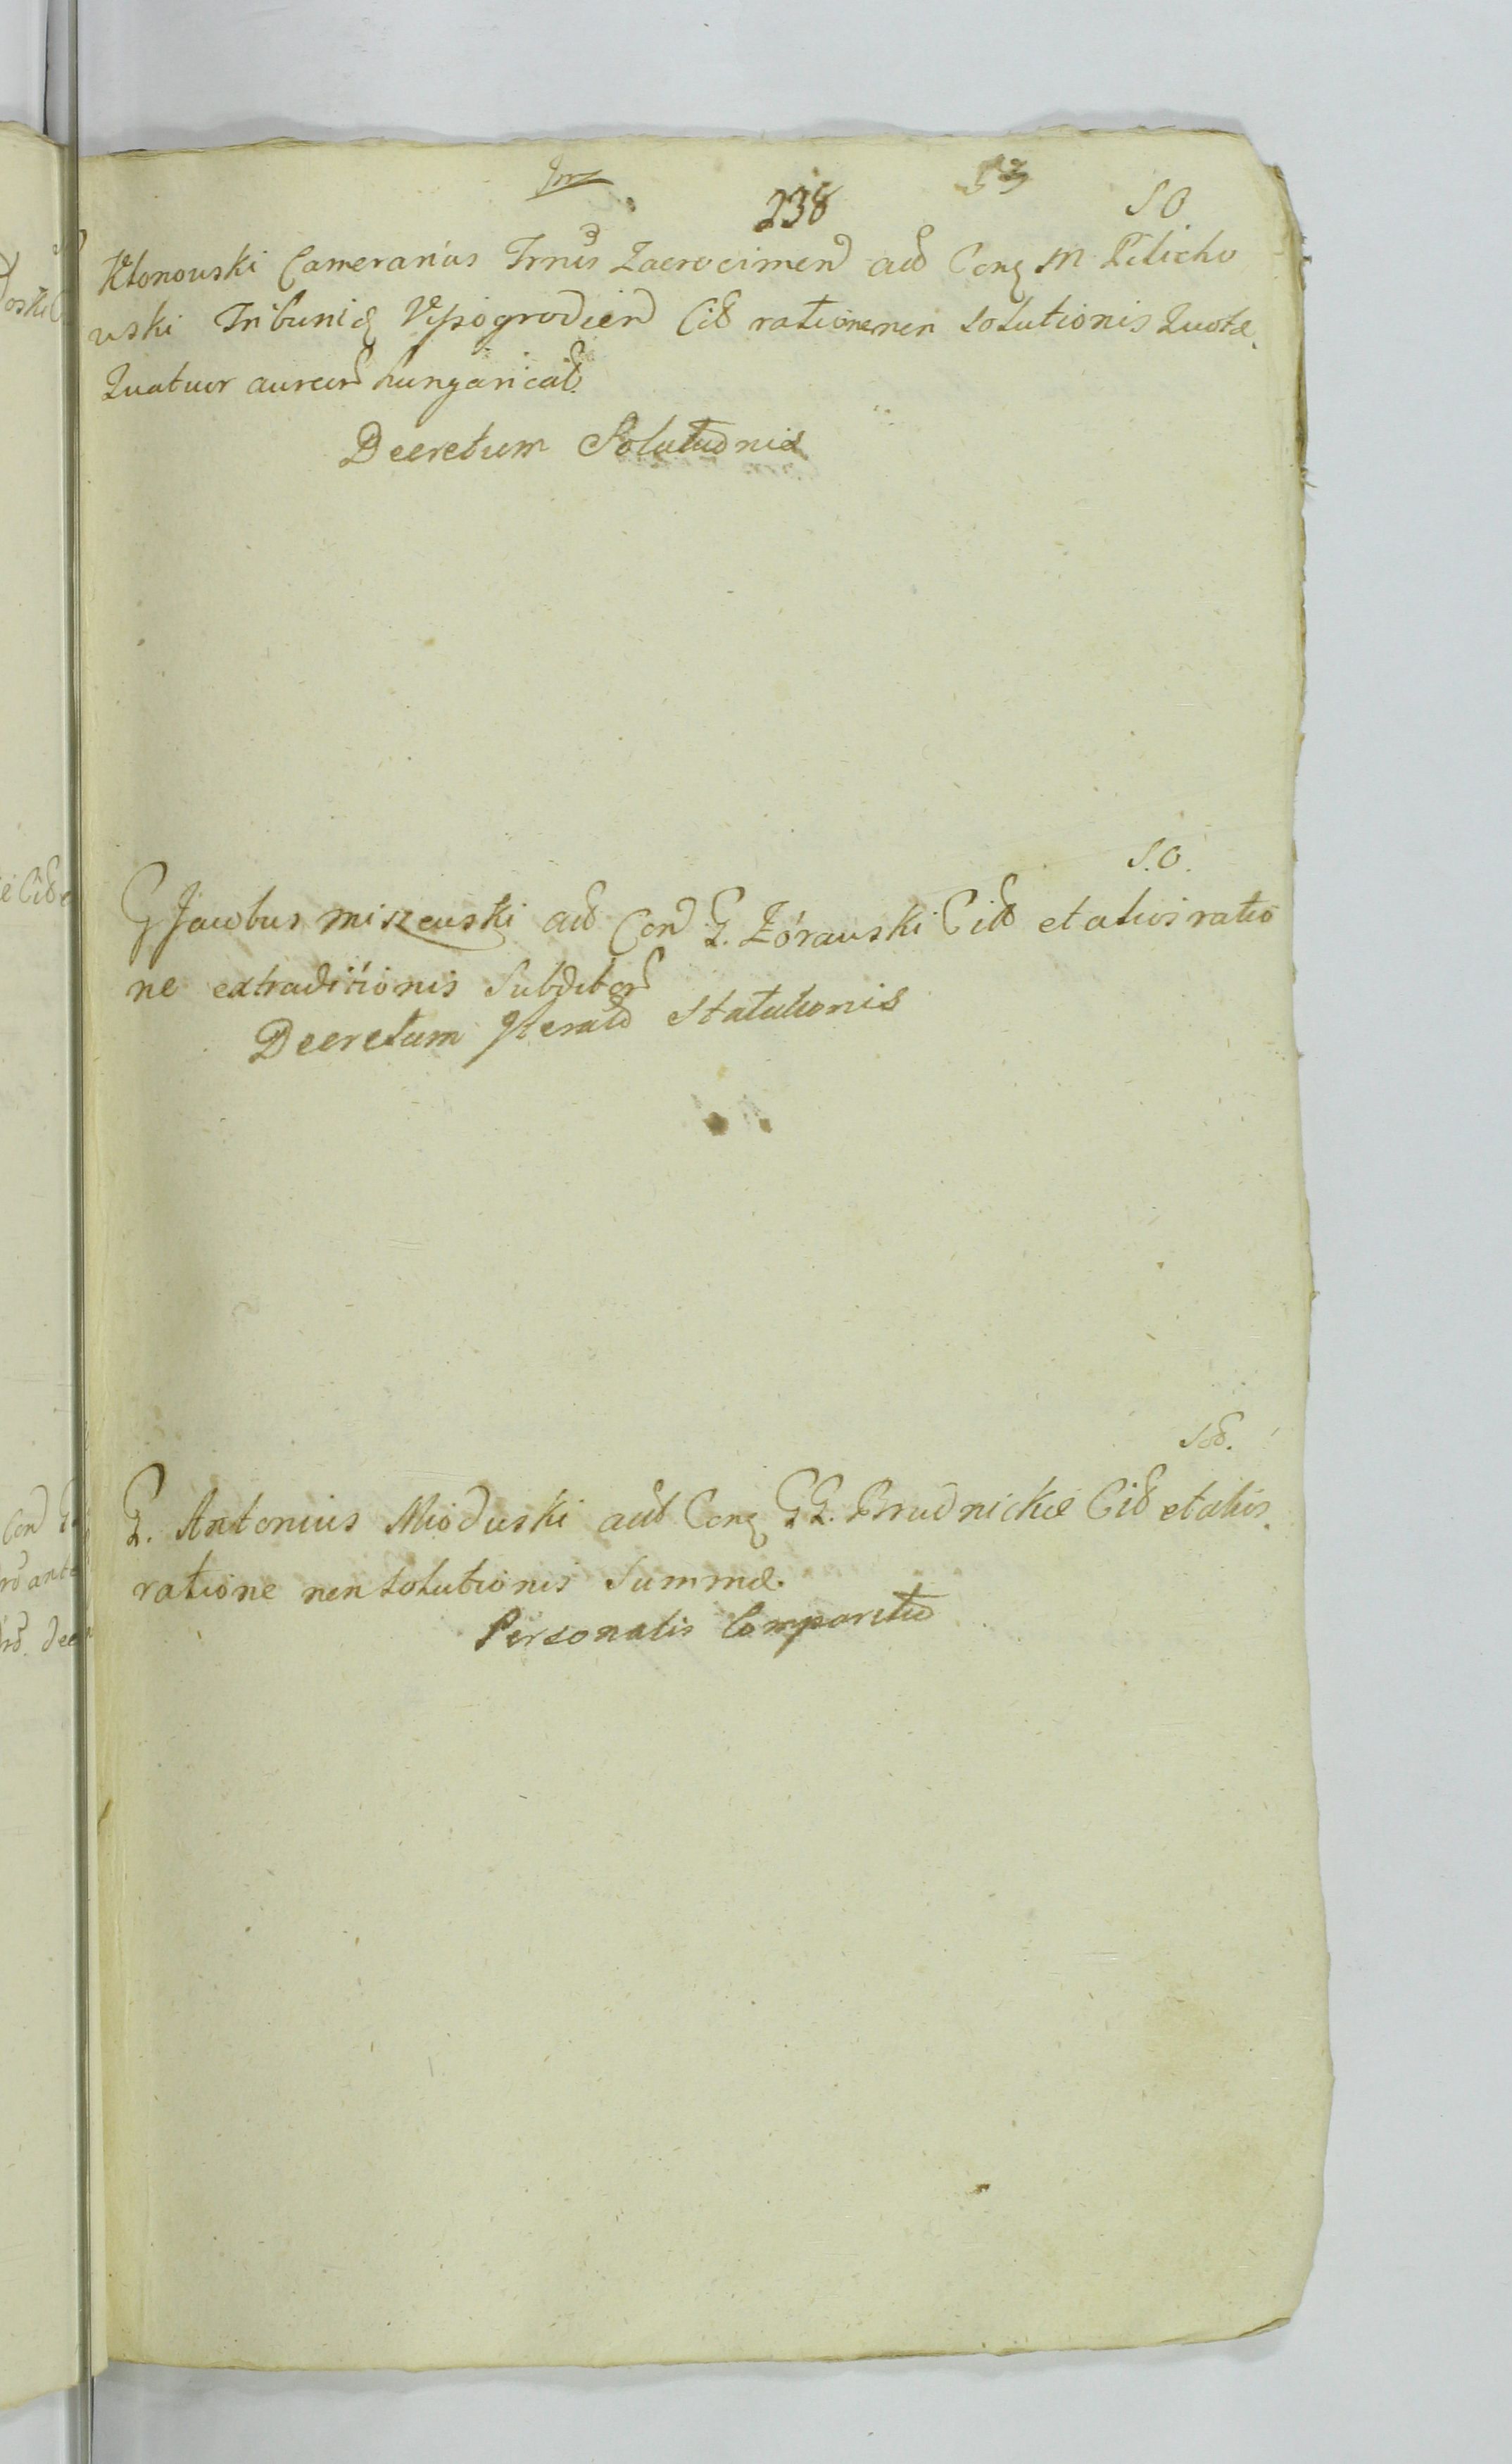 238
S O
Klonowski Camerarius Trrus Zacrocimen ad Con M. Pilicho
wski Tribuni Wyszogrodien Cit ratione non solutionis Quotæ
Quatuor aureor hungarical.
Decretum Solutionis
S. O.
G Jacobus Miszewski act Con G. Zórawski Cit et alios ratio
ne extraditionis Subditor
Decretum Iterato Statutionis
G. Antonius Mioduski act Con GG. Brudnickie Cit et alios
ratione non solutionis Summæ.
Personalis Comparitio